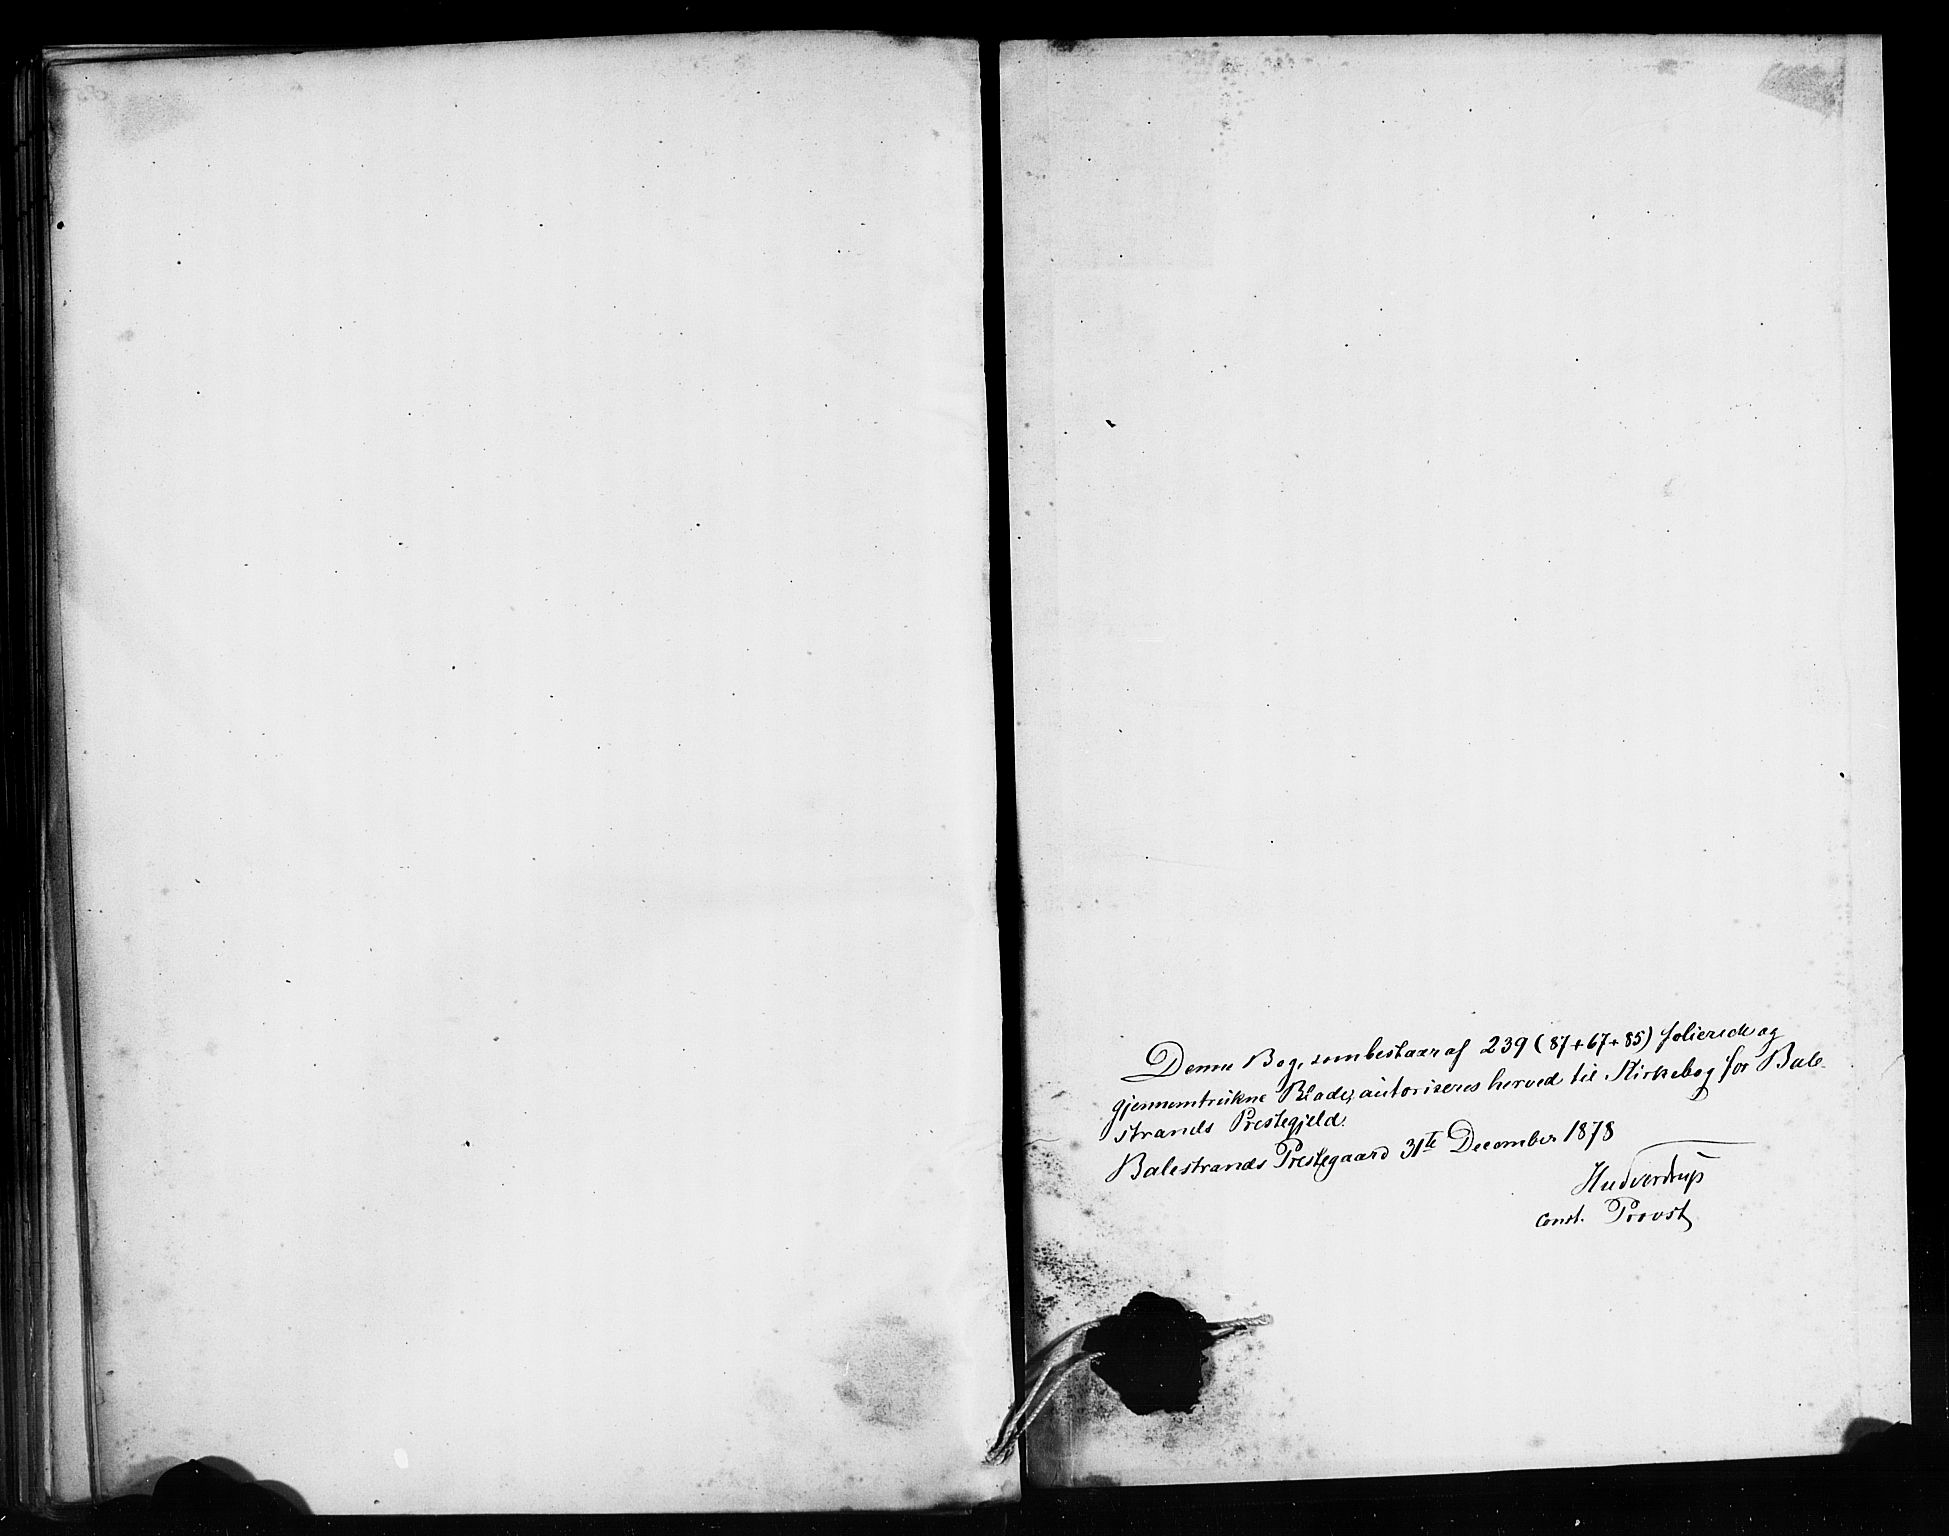 Denne Bog, som bestaar af 239 (87+67+85) folierede og
gjennemtrukne Blade, autoriseres herved til Kirkebog for Bale-
strands Prestegjeld.
Balestrands Prestegaard 31te December 1878
const. Provst